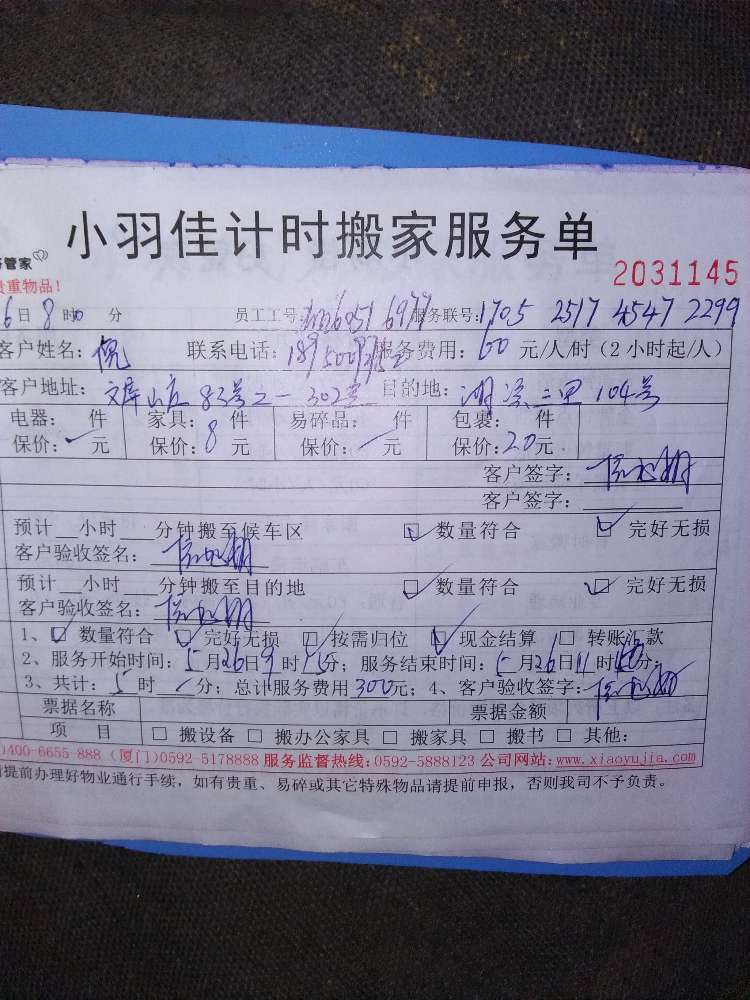 小羽佳计时搬家服务单
管家
贵重物品！
2031145
6日8时 分 员工工号: 6051 6977 服务联号: 1705 2517 4547 2299
客户姓名：倪 联系电话： 服务费用：60元/人/时（2小时起/人）
客户地址： 83号之一302室 目的地： 二里104号
电器： 件 家具： 件 易碎品： 件 包裹： 件
保价： 元 保价：8元 保价： 元 保价：20元
客户签字：
客户签字：
预计__小时___分钟搬至候车区 ☑数量符合 ☑完好无损
客户验收签名：
预计__小时___分钟搬至目的地 ☑数量符合 ☑完好无损
客户验收签名：
1、☑数量符合 ☑完好无损 ☑按需归位 ☑现金结算 □转账汇款
2、服务开始时间：5月26日9时 分；服务结束时间：5月26日11时 分；
3、共计：5时 分；总计服务费用300元；4、客户验收签字：
票据名称 票据金额
项 目 □搬设备 □搬办公家具 □搬家具 □搬书 □其他：
)400-6655-888（厦门)0592-5178888 服务监督热线:0592-5888123 公司网站:www.xiaoyujia.com
提前办理好物业通行手续，如有贵重、易碎或其它特殊物品请提前申报，否则我司不予负责。